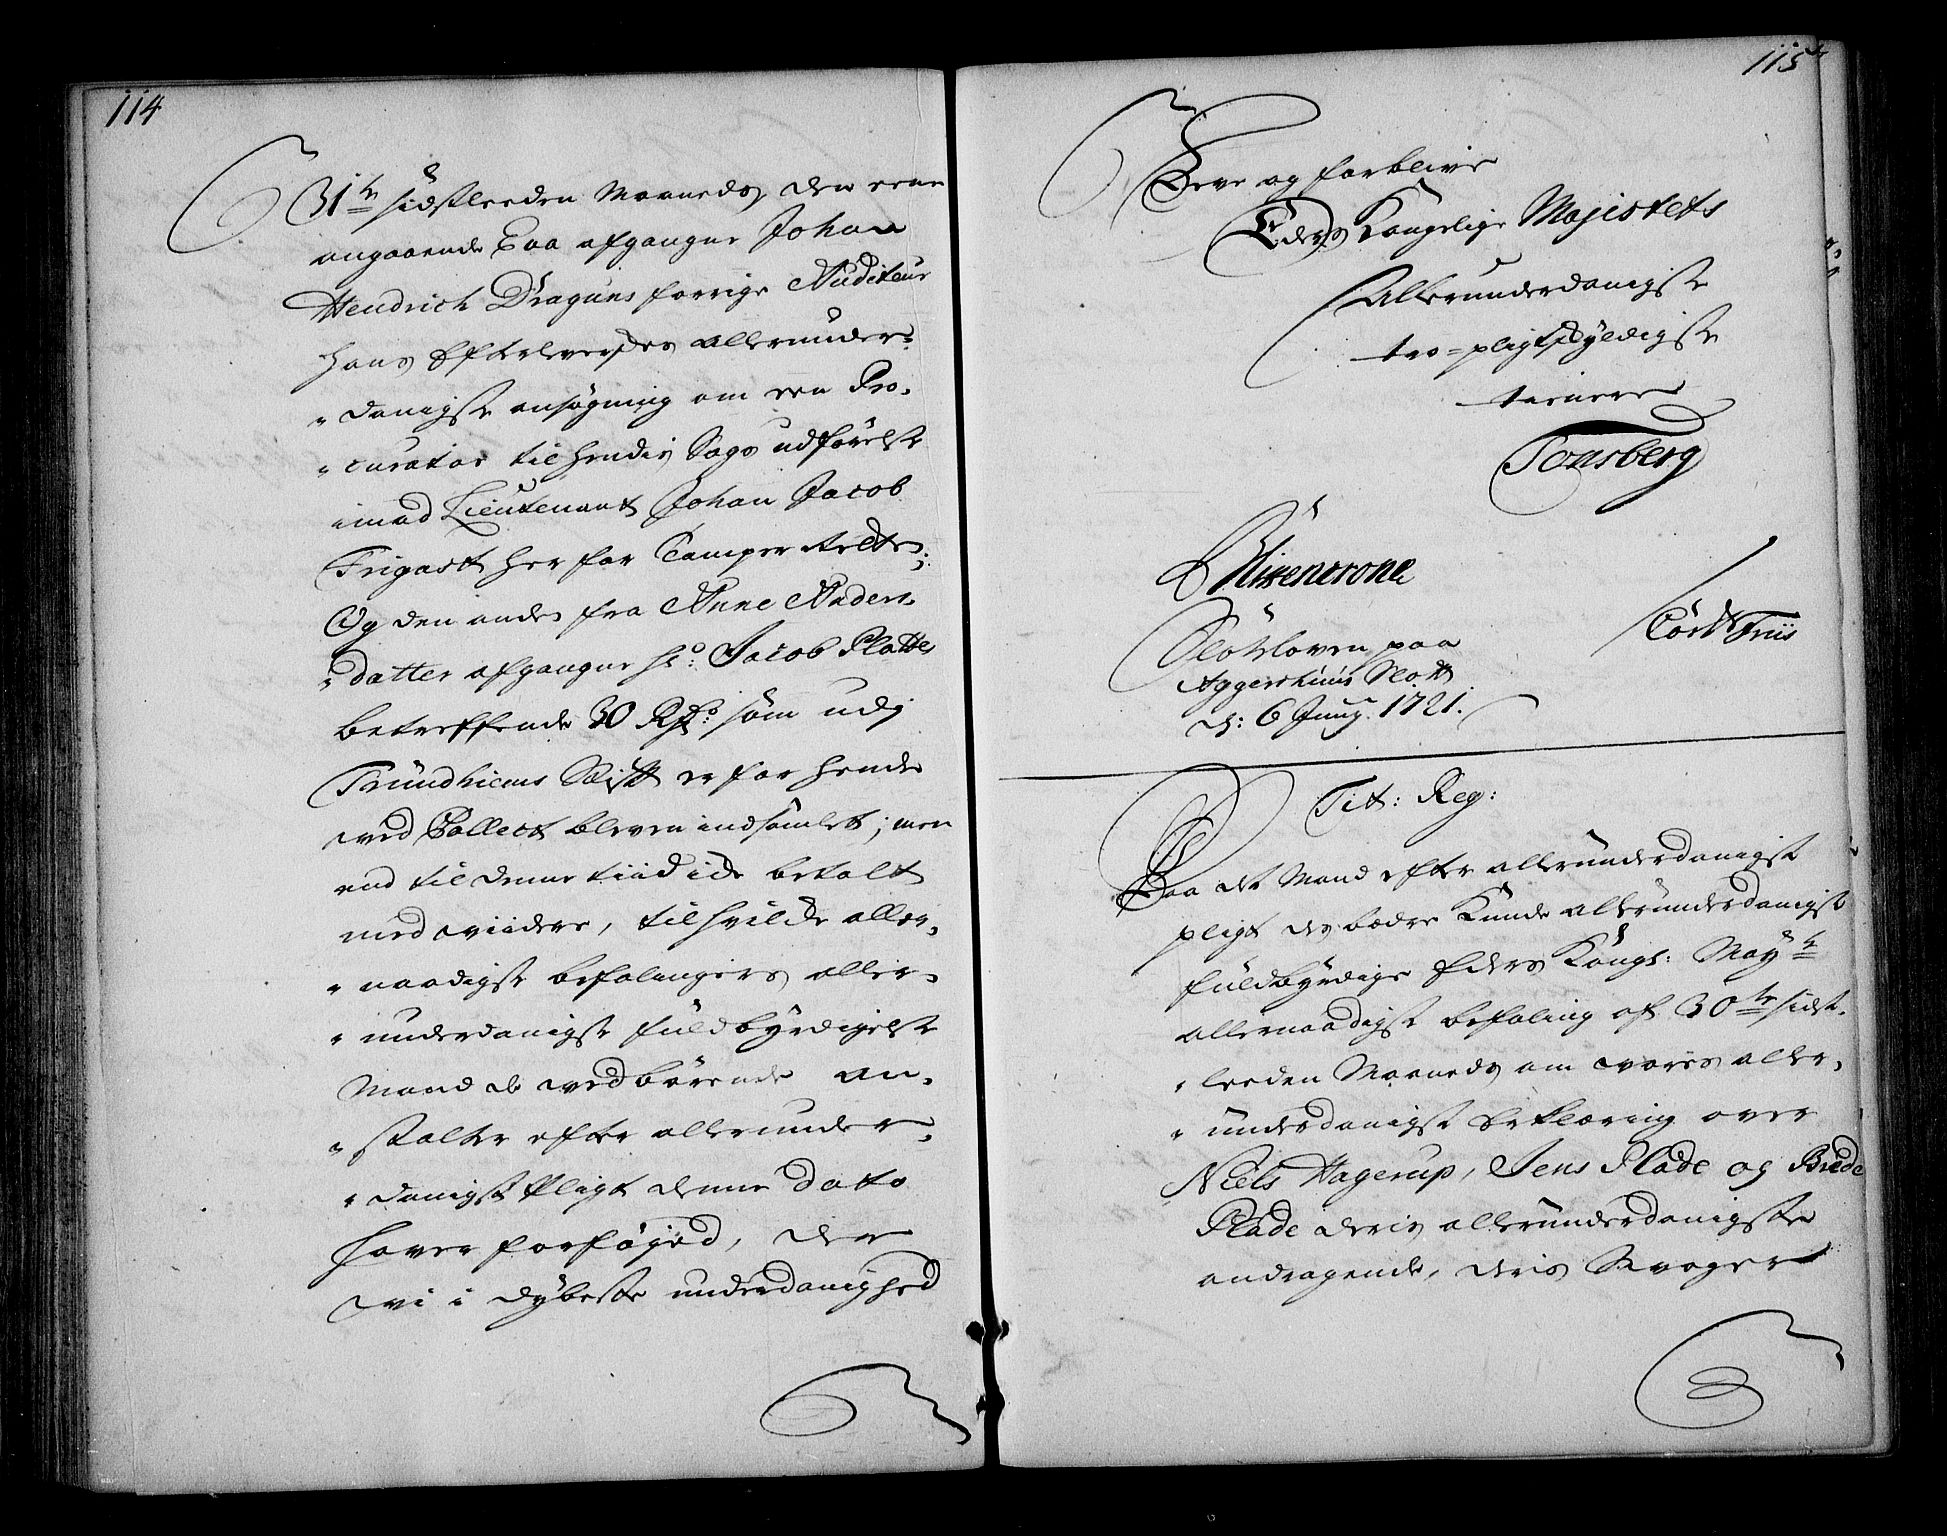 114
31te sidstleeden Maaneds, den eene
angaaende Paa afgangne Johan
Hendrich Draguns forrige Auditeur
hans Efterleverskes allerunder-
danigste ansøgning om een Pro-
curator til hendis Sags udførelse
imod Lieutenant Johan Jacob
Frigast her for Camper Retten;
Og den anden fra Anne Anders
datter afgangne Hr: Jacob Platte
betreffende 30 Rdr: som udj
Trundhiems Stift er for hende
ved Collect bleven indsamlet; men
end til denne tiid icke betalt
med viidere, til hvilcke aller-
naadigste befalingers aller-
underdanigste fuldbyrdigelse
Mand de vedbørende an-
stalter efter allerunder-
danigst Pligt denne dato
haver forføyed, der
vi i dybeste underdanighed
115
Leve og forblive
Eders Kongelige Majestets
Allerunderdanigste
troe-pligtskyldigste
tienere
Tonsberg
Slotsloven paa
Aggershuus Slott
d: 6 Juny 1721.
Cordt Friis
Tit: Reg:
Paa det Mand efter allerunderdanigst
pligt des bedre Kunde allerunderdanigst
fuldbyrdige Eders Kongl: Mayts
allernaadigste befaling af 30te sidst-
leeden Maaneds om voris aller-
underdanigste Erklæring over
Niels Hagerup, Jens Plade og Brede
Plade deris allerunderdanigste
andragende, deris Svoger